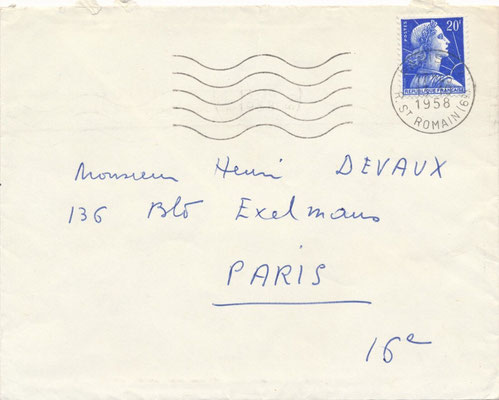 POSTES 20F
RÉPUBLIQUE FRANÇAISE
1958
R. ST ROMAIN (6
Monsieur Henri DEVAUX
136 Bld Exelmans
PARIS
16e